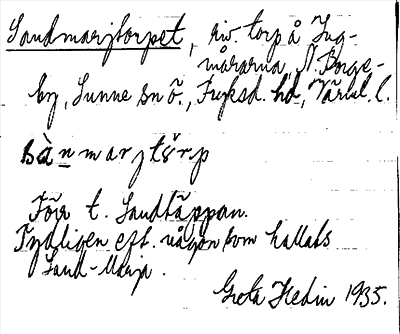 Sandmarjtorpet, riv. torp å Ing-
mårarna, N. Borge-
by, Sunne sn ö., Fryksd. hd, Värml. l.
sànmarjtörp
Förr t. Sandtäppan.
Tydligen eft. någon som kallats
Sand-Marja.
Greta Hedin 1935.